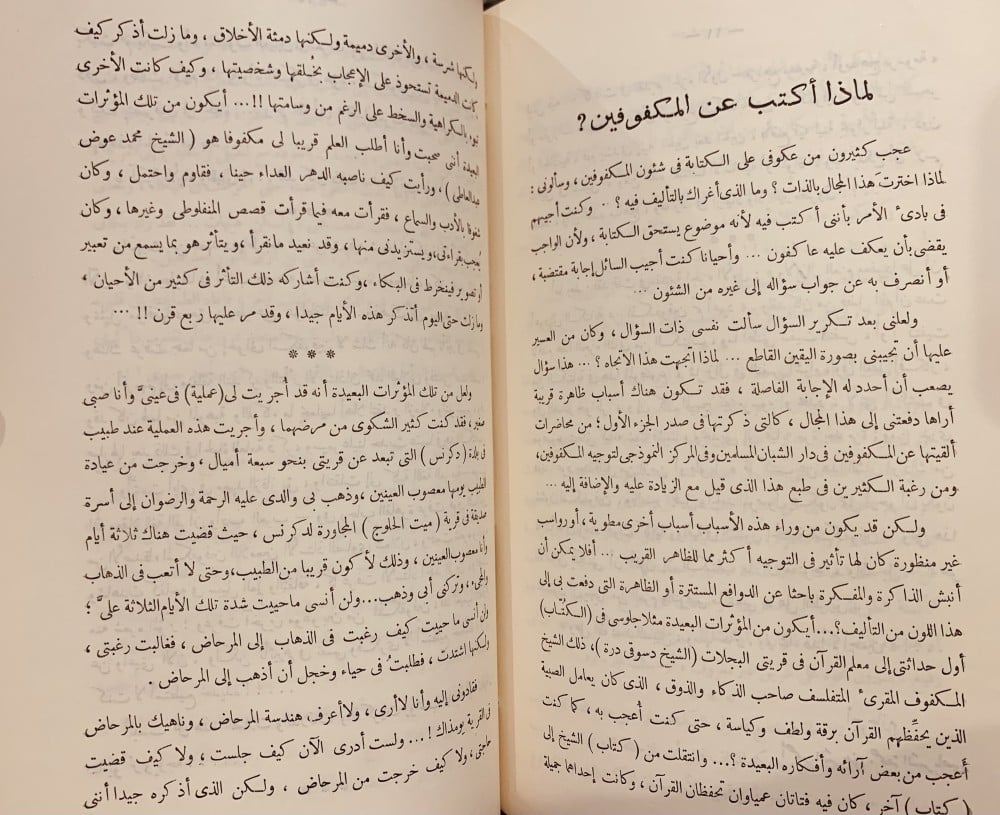 لماذا أكتب عن المكفوفين؟
عجب كثيرون من عكوفى على الكتابة فى شئون المكفوفين، وسألونى:
لماذا اخترتَ هذا المجال بالذات؟ وما الذى أغراك بالتأليف فيه؟ .. وكنت أجيبهم
فى بادىء الأمر بأننى أكتب فيه لأنه موضوع يستحق الكتابة، ولأن الواجب
يقضى بأن يعكف عليه عاكفون ... وأحيانا كنت أجيب السائل إجابة مقتضبة،
أو أنصرف به عن جواب سؤاله إلى غيره من الشئون ...
ولعلنى بعد تكرير السؤال سألت نفسى ذات السؤال، وكان من العسير
عليها أن تجيبنى بصورة اليقين القاطع ... لماذا اتجهت هذا الاتجاه؟ ... هذا سؤال
يصعب أن أحدد له الإجابة الفاصلة، فقد تكون هناك أسباب ظاهرة قريبة
أراها دفعتنى إلى هذا المجال، كالتى ذكرتها فى صدر الجزء الأول؛ من محاضرات
ألقيتها عن المكفوفين فى دار الشبان المسلمين وفى المركز النموذجى لتوجيه المكفوفين،
ومن رغبة الكثيرين فى طبع هذا الذى قيل مع الزيادة عليه والإضافة إليه ...
ولكن قد يكون من وراء هذه الأسباب أسباب أخرى مطوية، أو رواسب
غير منظورة كان لها تأثير فى التوجيه أكثر مما للظاهر القريب ... أفلا يمكن أن
أنبش الذاكرة والمفكرة باحثا عن الدوافع المستترة أو الظاهرة التى دفعت بى إلى
هذا اللون من التأليف؟... أيكون من المؤثرات البعيدة مثلا جلوسى فى (الكتّاب)
أول حداثتى إلى معلم القرآن فى قريتى البجلات (الشيخ دسوقى درة)، ذلك الشيخ
المكفوف المقرىء المتفلسف صاحب الذكاء والذوق، الذى كان يعامل الصبية
الذين يحفِّظهم القرآن برقة ولطف وكياسة، حتى كنت أُعجب به، كما كنت
أَعجب من بعض آرائه وأفكاره البعيدة؟... وانتقلت من (كتاب) الشيخ إلى
(كتاب) آخر، كان فيه فتاتان عمياوان تحفظان القرآن، وكانت إحداهما جميلة
ولكنها شرسة، والأخرى دميمة ولكنها دمثة الأخلاق، وما زلت أذكر كيف
كانت الدميمة تستحوذ على الإعجاب بخُلقها وشخصيتها، وكيف كانت الأخرى
تبوء بالكراهية والسخط على الرغم من وسامتها!!... أيكون من تلك المؤثرات
البعيدة أننى صحبت وأنا أطلب العلم قريبا لى مكفوفا هو (الشيخ محمد عوض
عبدالعاطى)، ورأيت كيف ناصبه الدهر العداء حينا، فقاوم واحتمل، وكان
شغوفا بالأدب والسماع، فقرأت معه فيما قرأت قصص المنفلوطى وغيرها، وكان
يُعجب بقراءتى، ويستزيدنى منها، وقد نعيد ما نقرأ، ويتأثر هو بما يسمع من تعبير
أو تصوير فينخرط فى البكاء، وكنت أشاركه ذلك التأثر فى كثير من الأحيان،
وما زلت حتى اليوم أتذكر هذه الأيام جيدا، وقد مر عليها ربع قرن!! ...
* * *
ولعل من تلك المؤثرات البعيدة أنه قد أُجريت لى (عملية) فى عينىَّ وأنا صبى
صغير، فقد كنت كثير الشكوى من مرضهما، وأجريت هذه العملية عند طبيب
فى بلدة (دكرنس) التى تبعد عن قريتى بنحو سبعة أميال، وخرجت من عيادة
الطبيب يومها معصوب العينين، وذهب بى والدى عليه الرحمة والرضوان إلى أسرة
صديقة فى قرية (ميت الحلوج) المجاورة لدكرنس، حيث قضيت هناك ثلاثة أيام
وأنا معصوب العينين، وذلك لأكون قريبا من الطبيب، وحتى لا أتعب فى الذهاب
والمجىء، وتركنى أبى وذهب... ولن أنسى ما حييت شدة تلك الأيام الثلاثة علىَّ؛
ولن أنسى ما حييت كيف رغبت فى الذهاب إلى المرحاض، فغالبت رغبتى،
ولكنها اشتدت، فطلبتُ فى حياء وخجل أن أذهب إلى المرحاض.
فقادونى إليه وأنا لا أرى، ولا أعرف هندسة المرحاض، وناهيك بالمرحاض
فى القرية يومذاك!... ولست أدرى الآن كيف جلست؛ ولا كيف قضيت
حاجتى، ولا كيف خرجت من المرحاض، ولكن الذى أذكره جيدا أننى